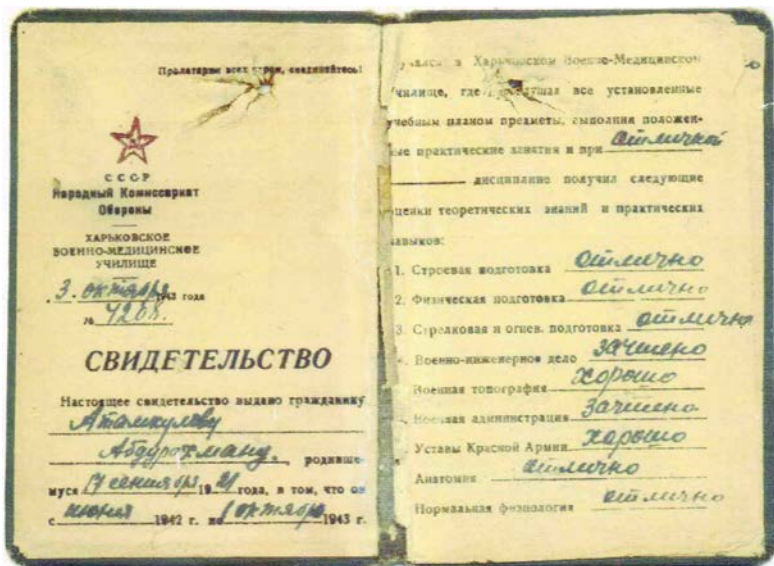 Пролетарии всех стран, соединяйтесь!
СССР
Народный Комиссариат
Обороны
ХАРЬКОВСКОЕ
ВОЕННО-МЕДИЦИНСКОЕ
УЧИЛИЩЕ
3. октября 1943 года
№
СВИДЕТЕЛЬСТВО
Настоящее свидетельство выдано гражданину
Атамкулову
Абдурахману, родивше-
муся 17 сентября 1921 года, в том, что он
с июня 1942 г. по 1 октября 1943 г.
в Харьковском Военно-Медицинском
училище, где прослушал все установленные
учебным планом предметы, выполнил положен-
ные практические занятия и при отличной
дисциплине получил следующие
оценки теоретических знаний и практических
навыков:
1. Строевая подготовка отлично
2. Физическая подготовка отлично
3. Стрелковая и огнев. подготовка отлично
4. Военно-инженерное дело зачтено
Военная топография хорошо
Военная администрация зачтено
Уставы Красной Армии хорошо
Анатомия отлично
Нормальная физиология отлично